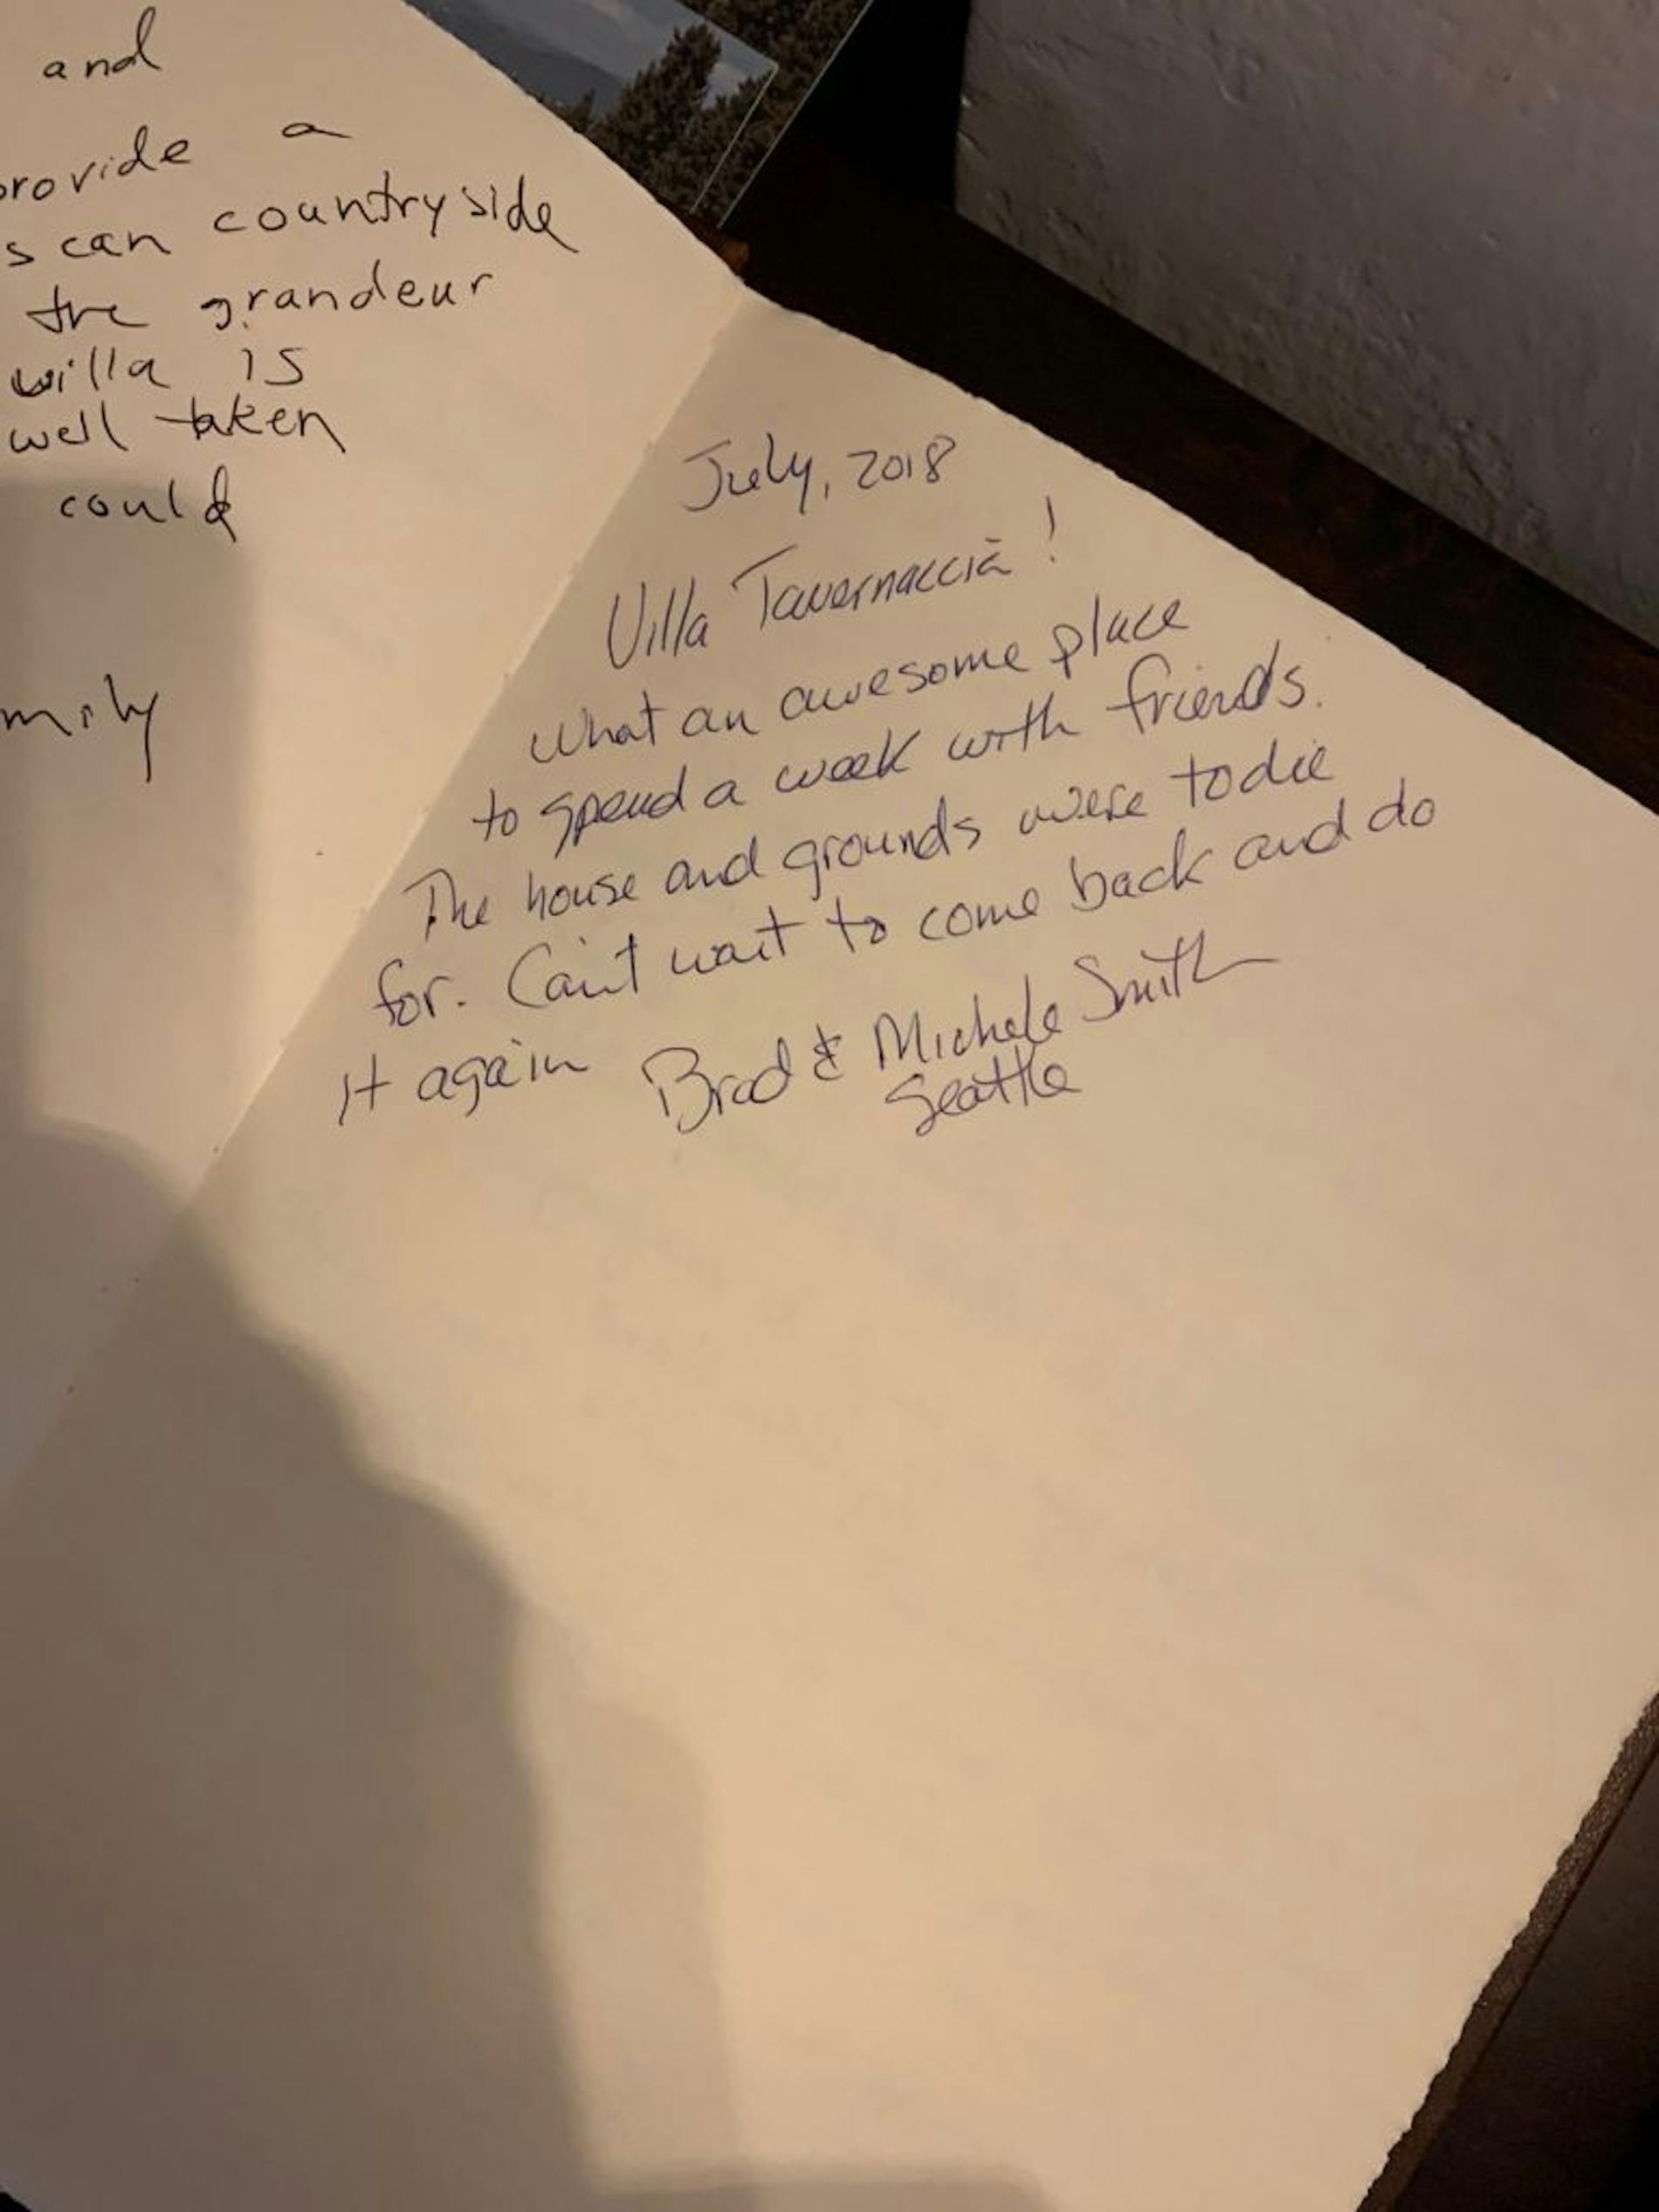 and
provide a
scan countryside
the grandeur
willa is
well taken
could
mily
July, 2018
Villa Tavernaccia!
What an awesome place
to spend a week with friends.
The house and grounds were to die
for. Can't wait to come back and do
it again Brad & Michele Smith
Seattle